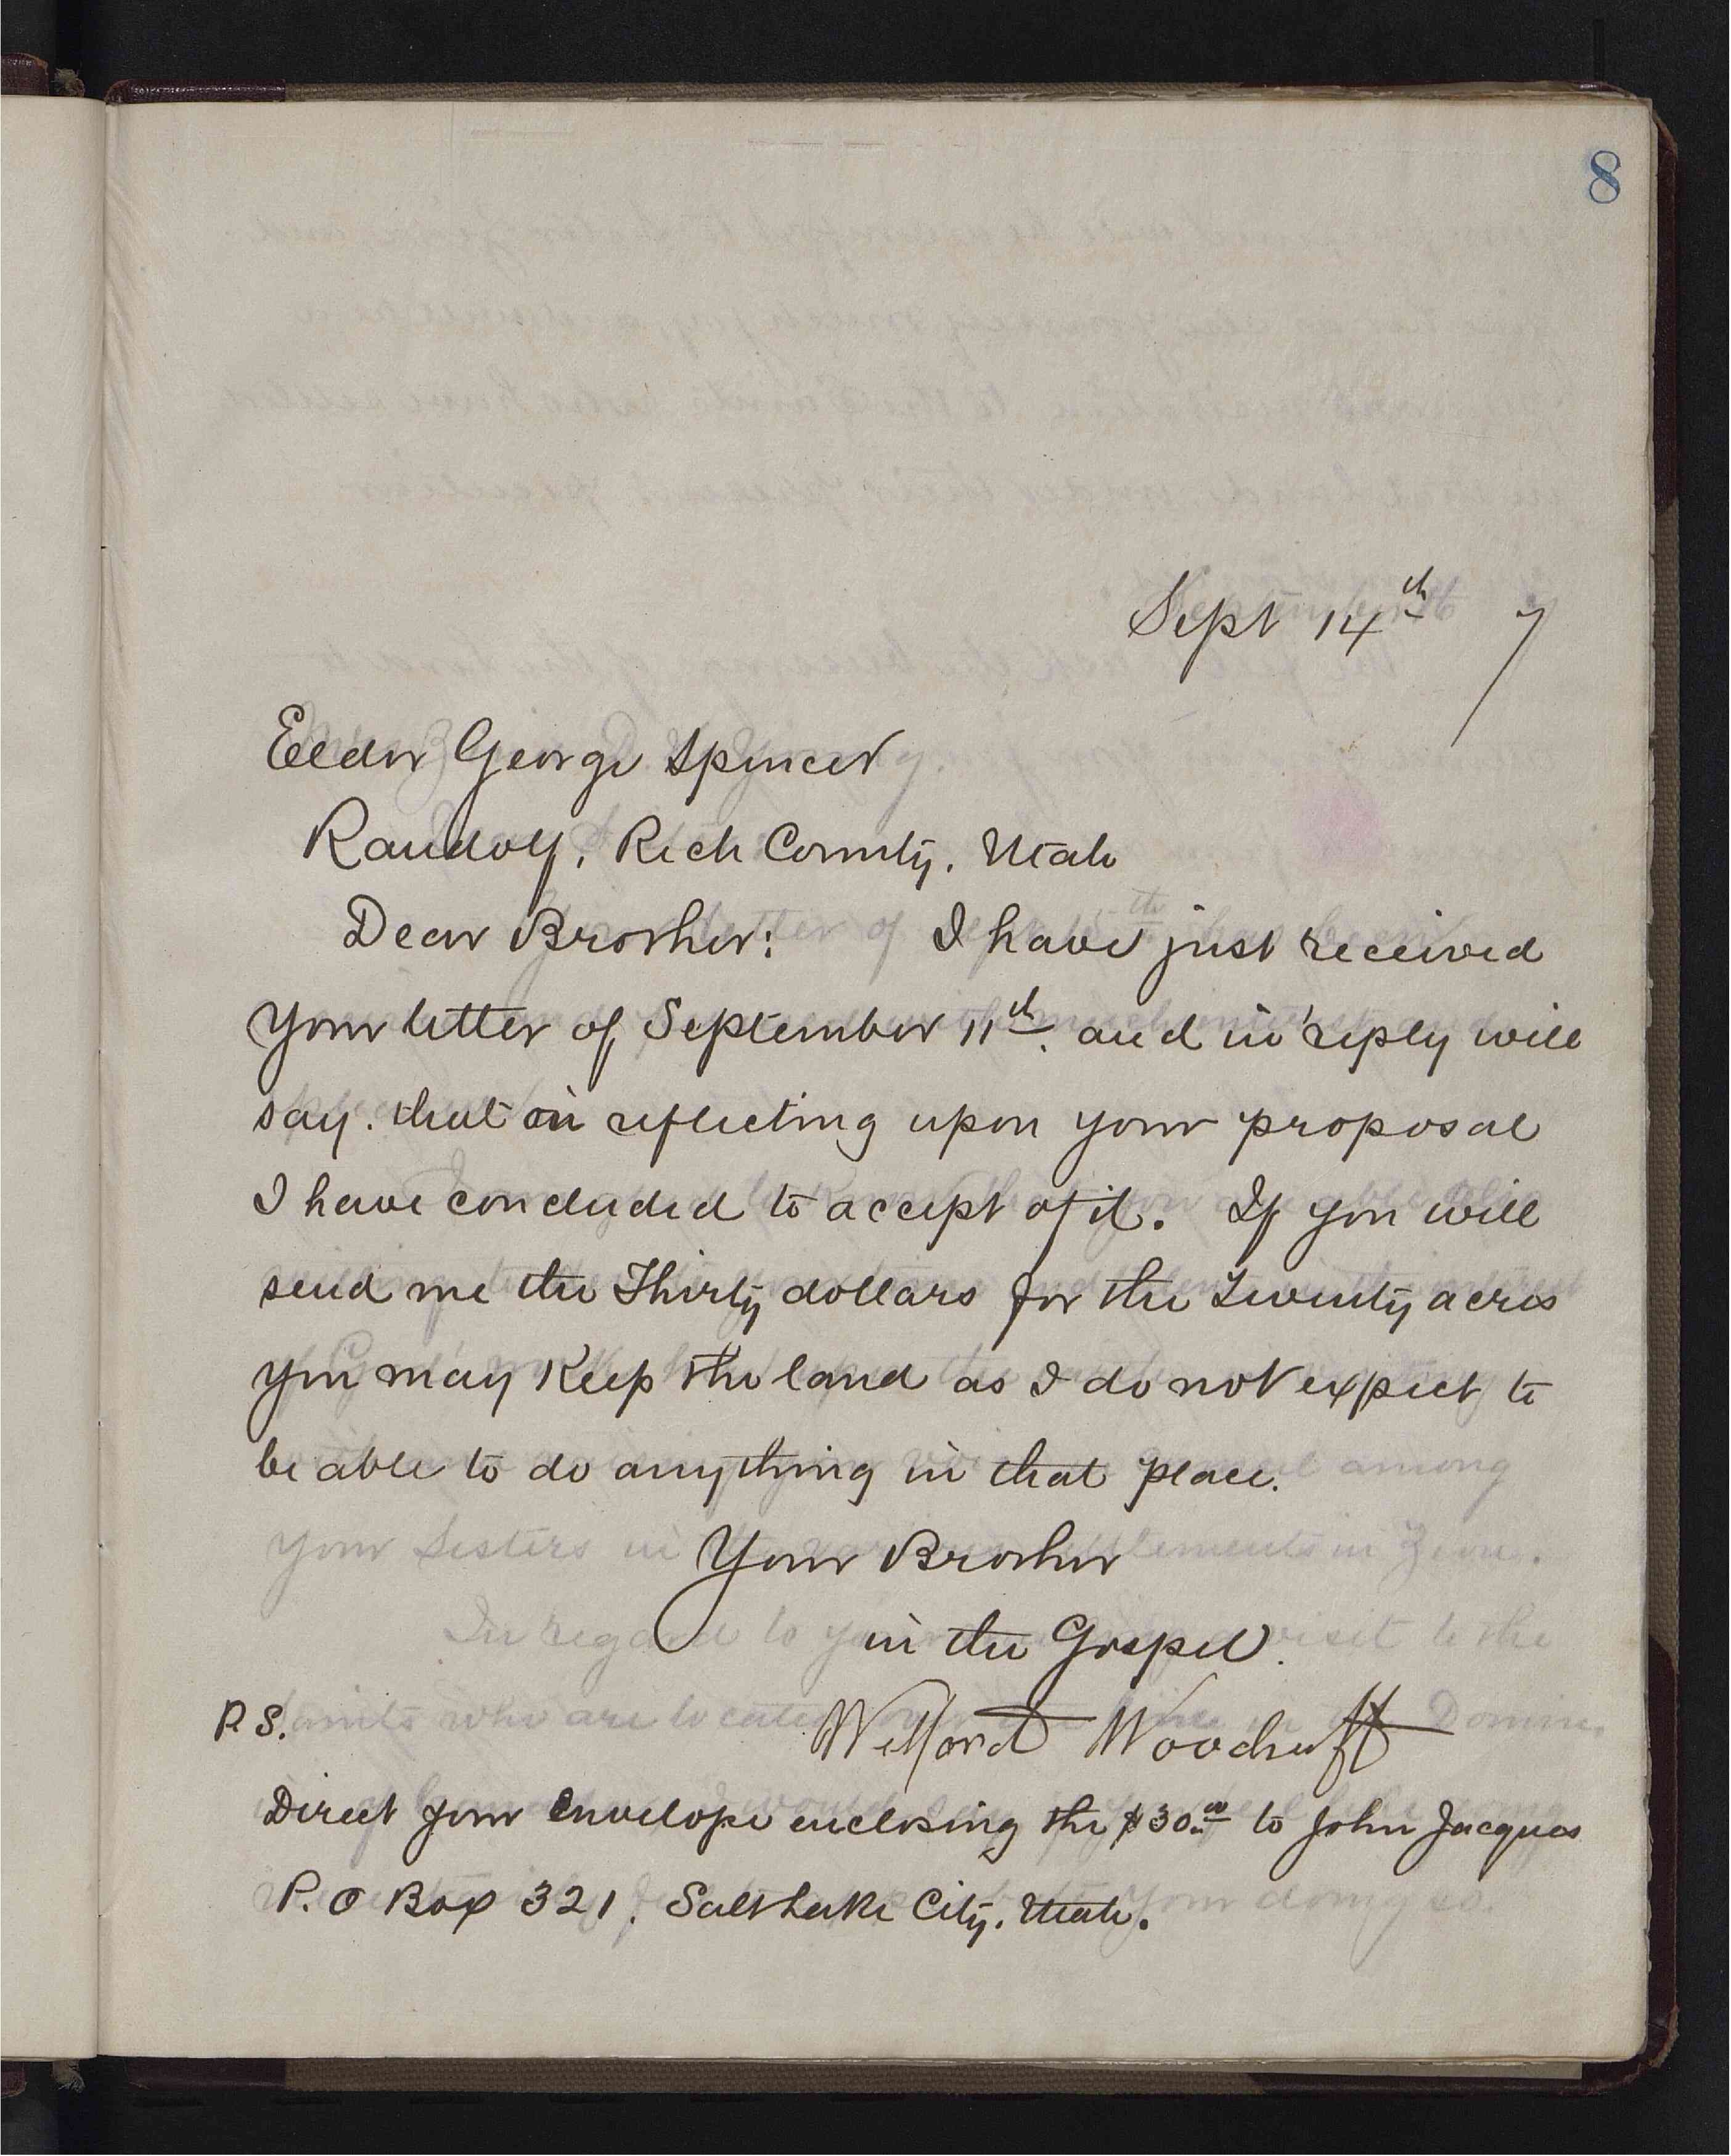 8
Sept 14th 7
Elder George Spencer
Randolf, Rich County. Utah
Dear Brother: I have just received
your letter of September 11th. and in reply will
say. that on reflecting upon your proposal
I have concluded to accept of it. If you will
send me the Thirty dollars for the Twenty acres
you may Keep the land as I do not expect to
be able to do anything in that place.
Your Brother
in the Gospel.
P.S. Wilford Woodruff
Direct your envelope enclosing the $30.00 to John Jacques
P.O Box 321. Salt Lake City. Utah.